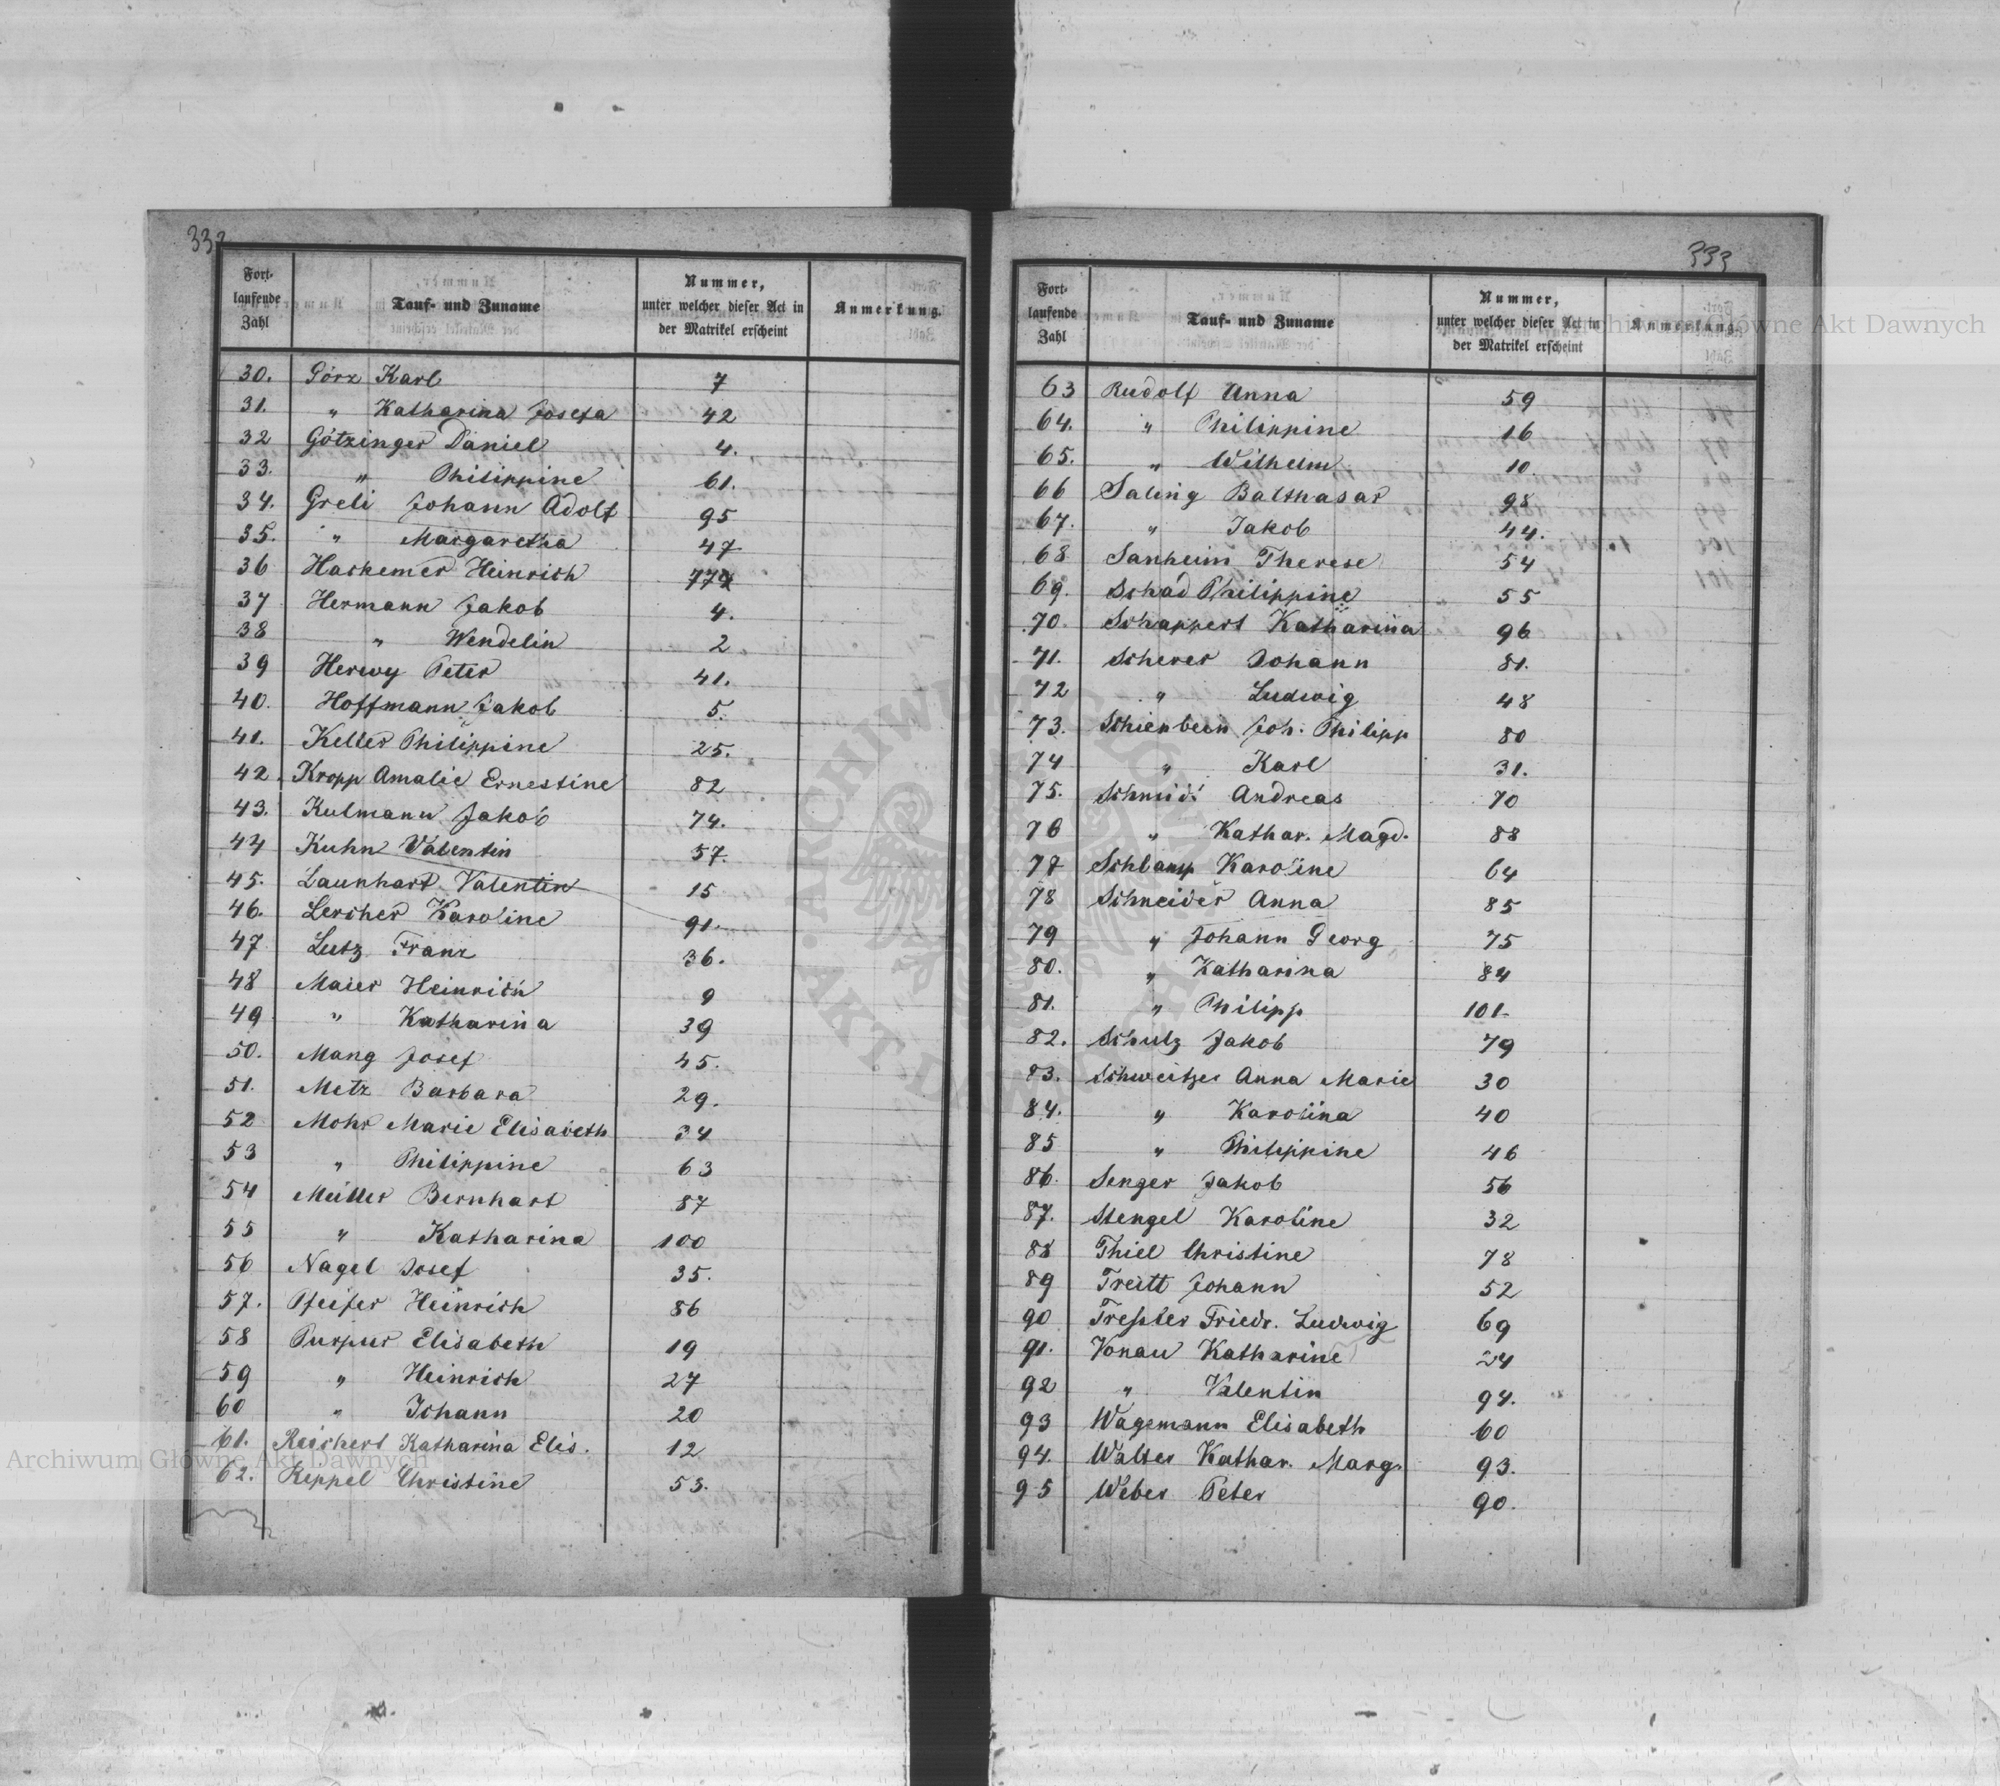 332
Fort-
laufende
Zahl
Tauf- und Zuname
Nummer,
unter welcher dieser Act in
der Matrikel erscheint
Anmerkung.
30. Görz Karl 7
31. " Katharina Josefa 42
32 Götzinger Daniel 4.
33. " Philippine 61.
34. Greli Johann Adolf 95
35. " Margaretha 47
36 Hackemer Heinrich
37 Hermann Jakob 4.
38 " Wendelin 2
39 Herwy Peter 41.
40. Hoffmann Jakob 5.
41. Keller Philippine 25.
42. Kropp Amalie Ernestine 82
43. Kulmann Jakob 74.
44 Kuhn Valentin 57.
45. Launhart Valentin 15
46. Lercher Karoline 91.
47 Lutz Franz 36.
48 Maier Heinrich 9
49 " Katharina 39
50. Mang Josef 45.
51. Metz Barbara 29.
52 Mohr Marie Elisabeth 34
53 " Philippine 63
54 Müller Bernhart 87
55 " Katharina 100
56 Nagel Josef 35.
57. Pfeifer Heinrich 86
58 Purpur Elisabeth 19
59 " Heinrich 27
60 " Johann 20
61. Reichert Katharina Elis. 12
62. Reppel Christine 53.
333
Fort-
laufende
Zahl
Tauf- und Zuname
Nummer,
unter welcher dieser Act in
der Matrikel erscheint
Anmerkung.
63 Rudolf Anna 59
64. " Philippine 16
65. " Wilhelm 10
66 Saling Balthasar 98
67. " Jakob 44.
68 Sanheim Therese 54
69. Schad Philippine 55
70. Schappert Katharina 96
71. Scherer Johann 81.
72 " Ludwig 48
73. Schienbein Joh. Philipp 80
74 " Karl 31.
75. Schmidt Andreas 70
76 " Kathar. Magd. 88
77 Schlamp Karoline 64
78 Schneider Anna 85
79 " Johann Georg 75
80. " Katharina 84
81. " Philipp 101
82. Schulz Jakob 79
83. Schweitzer Anna Marie 30
84. " Karolina 40
85 " Philippine 46
86. Senger Jakob 56
87. Stengel Karoline 32
88 Thiel Christine 78
89 Treitt Johann 52
90 Treßter Friedr. Ludwig 69
91. Vonau Katharine 24
92 " Valentin 94.
93 Wagemann Elisabeth 60
94. Walter Kathar. Marg. 93.
95 Weber Peter 90.
Archiwum Główne Akt Dawnych
Archiwum Główne Akt Dawnych